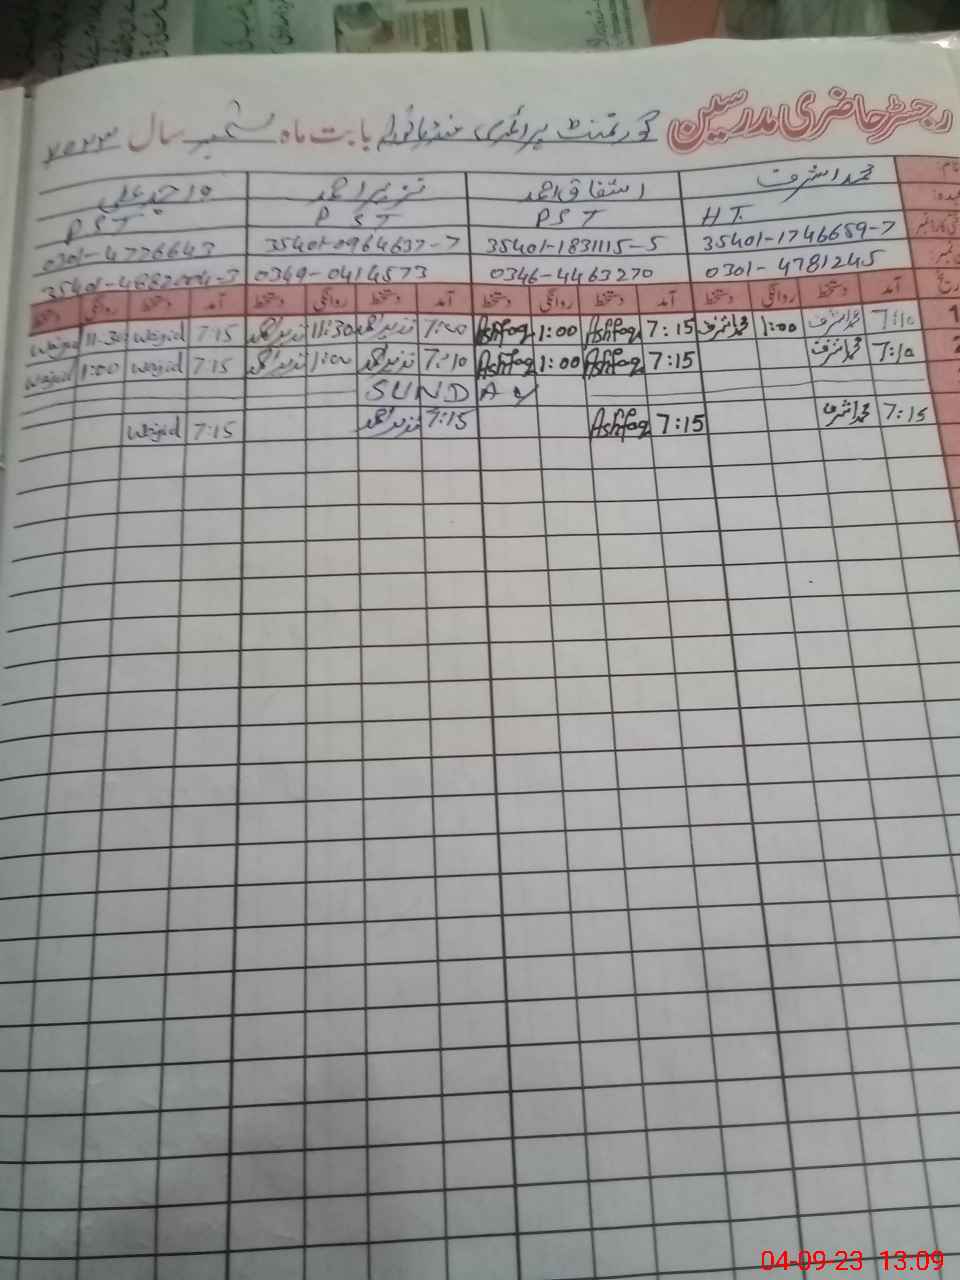 رجسٹر حاضری مدرسین گورنمنٹ پرائمری بابت ماہ ستمبر سال ۲۰۲۳
محمد اشرف اشفاق احمد نذیر احمد واجد علی
HT PST PST PST
35401-1746659-7 35401-1831115-5 35401-0964637-7 0301-4776643
0301-4781245 0346-4463270 0369-0414573
آمد دستخط روانگی دستخط آمد دستخط روانگی دستخط آمد دستخط روانگی دستخط آمد دستخط روانگی دستخط
1 7:10 محمد اشرف 1:00 محمد اشرف 7:15 Ashfaq 1:00 Ashfaq 7:00 نذیر احمد 11:30 نذیر احمد 7:15 Wajid 11:30 Wajid
2 7:10 محمد اشرف 7:15 Ashfaq 1:00 Ashfaq 7:10 نذیر احمد 1:00 نذیر احمد 7:15 Wajid 1:00 Wajid
SUNDAY
7:15 محمد اشرف 7:15 Ashfaq 7:15 نذیر احمد 7:15 Wajid
04-09-23 13.09